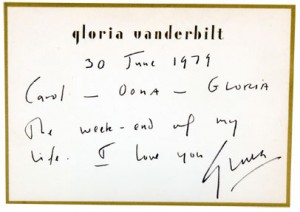 gloria vanderbilt
30 June 1979
Carol — Oona — GLORIA
The week-end of my
life. I love you
Gloria